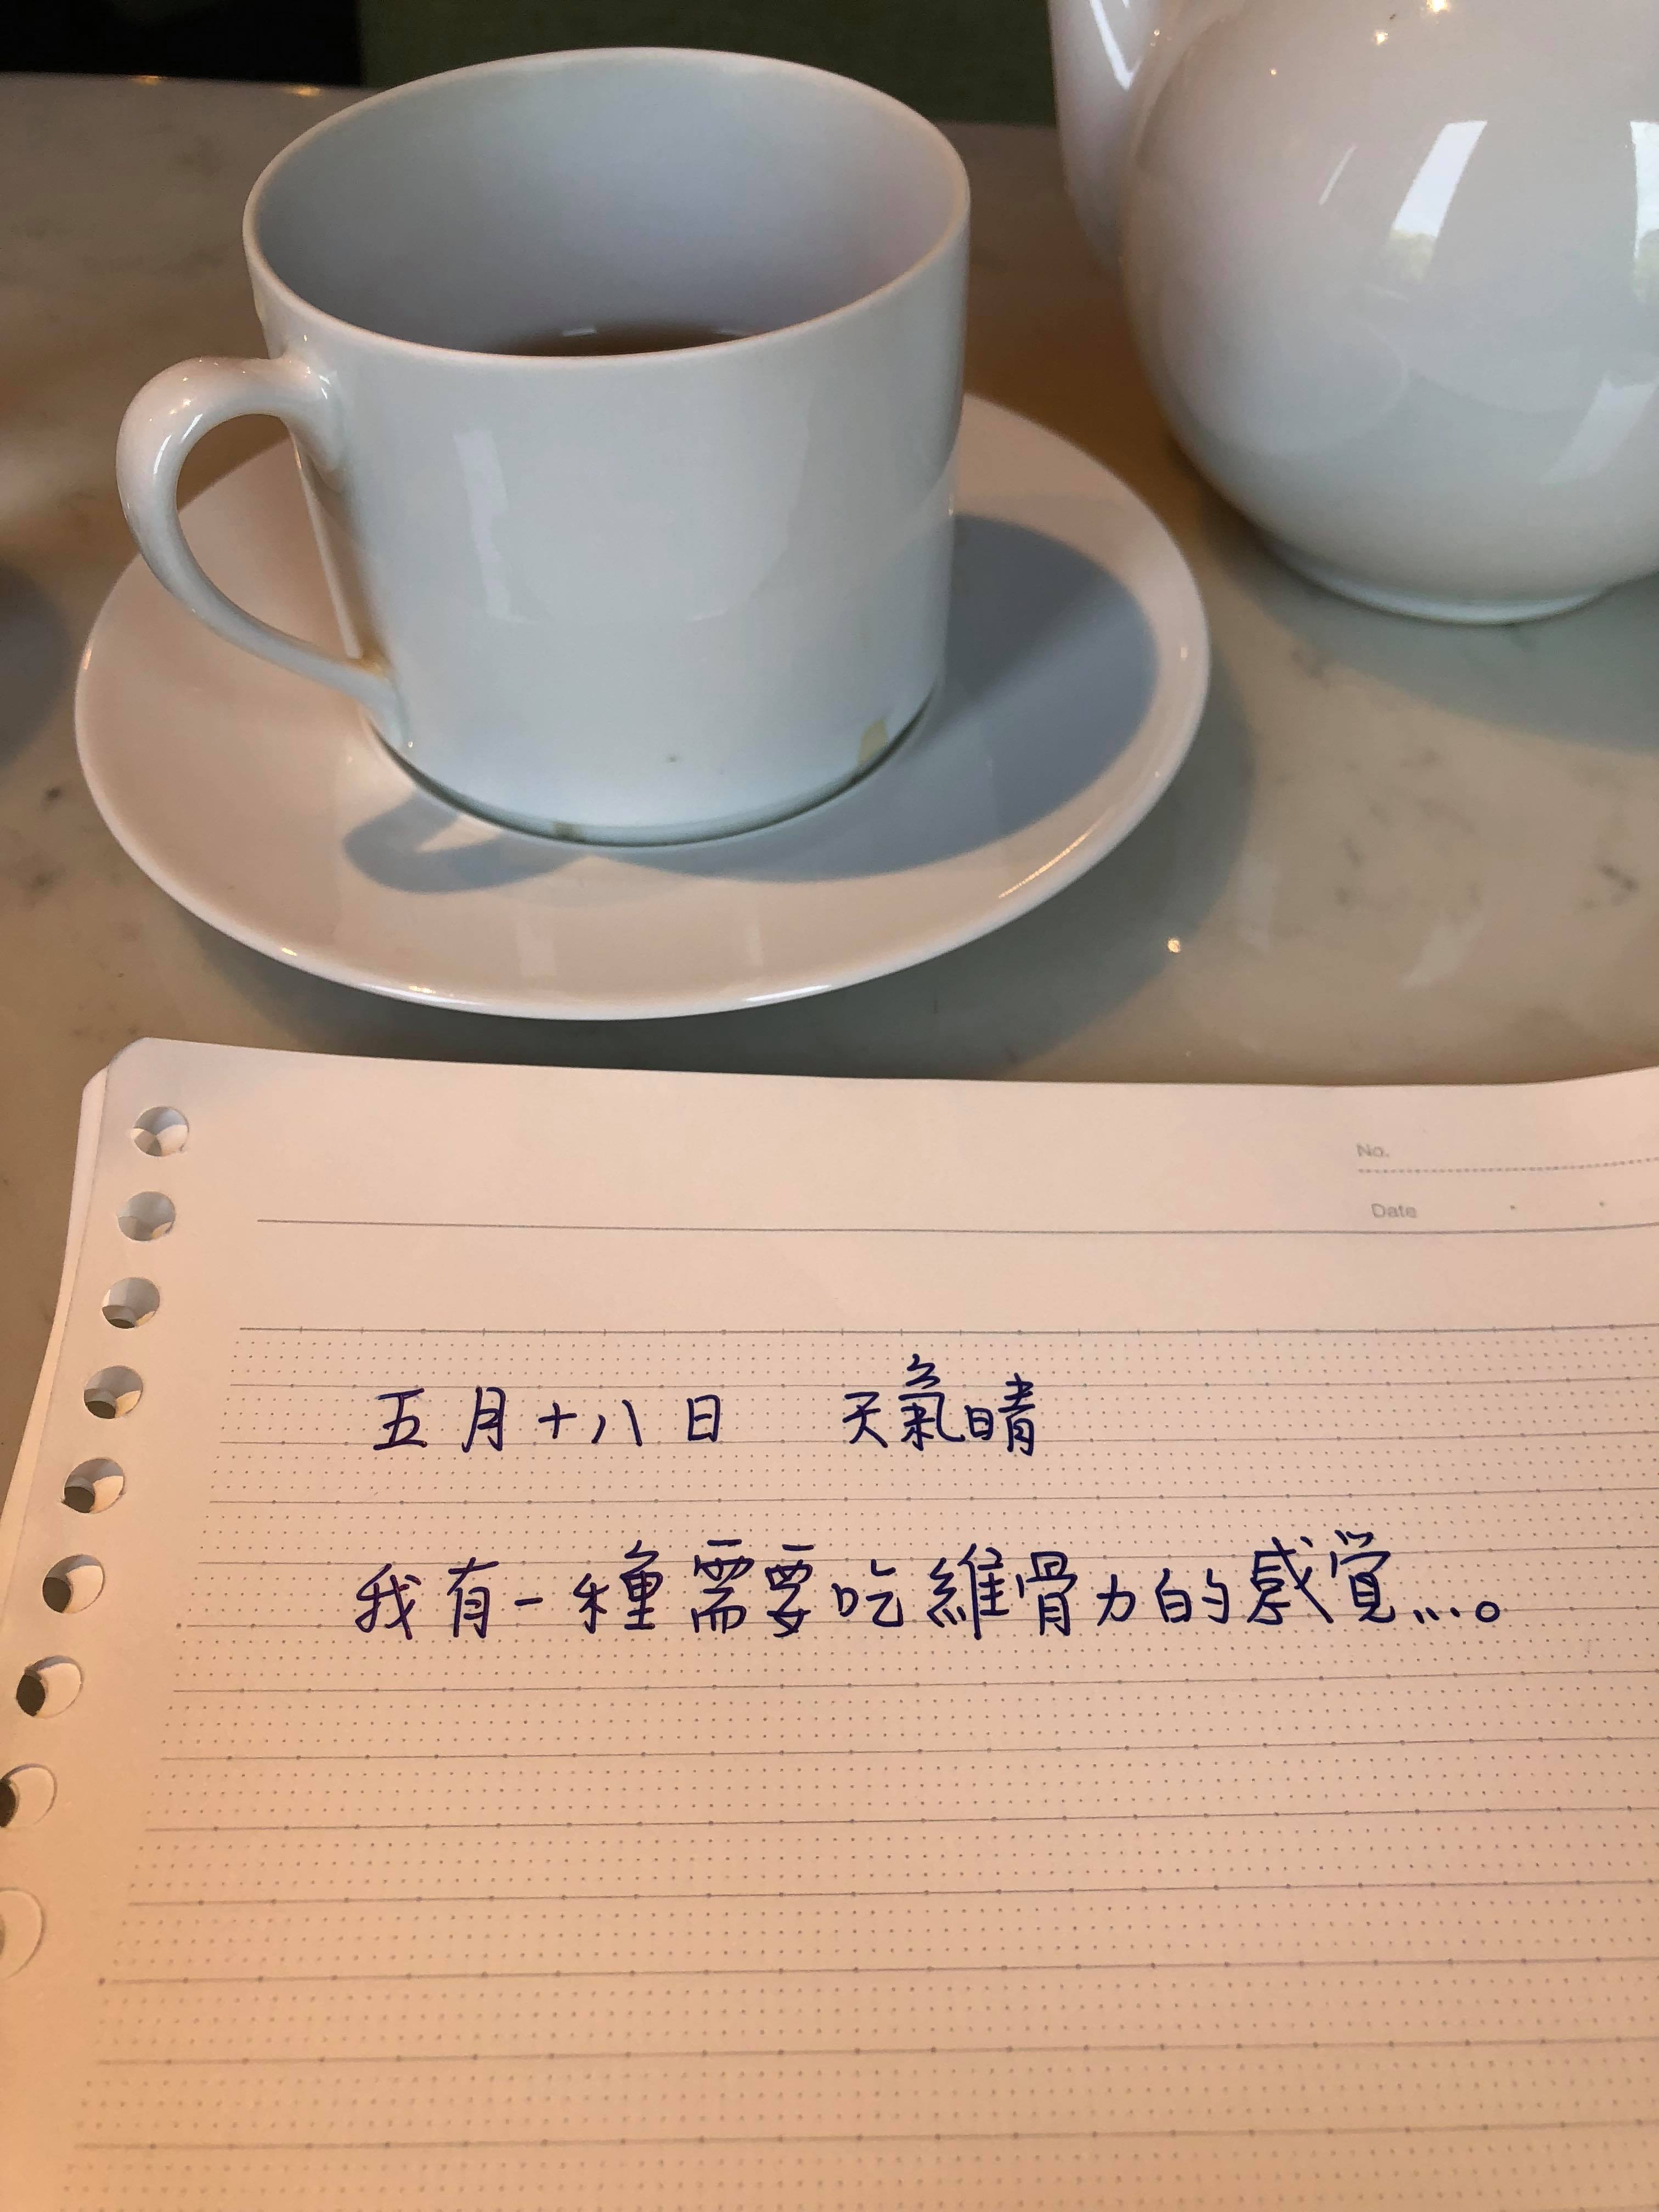 No.
Date
五月十八日 天氣晴
我有一種需要吃維骨力的感覚...。